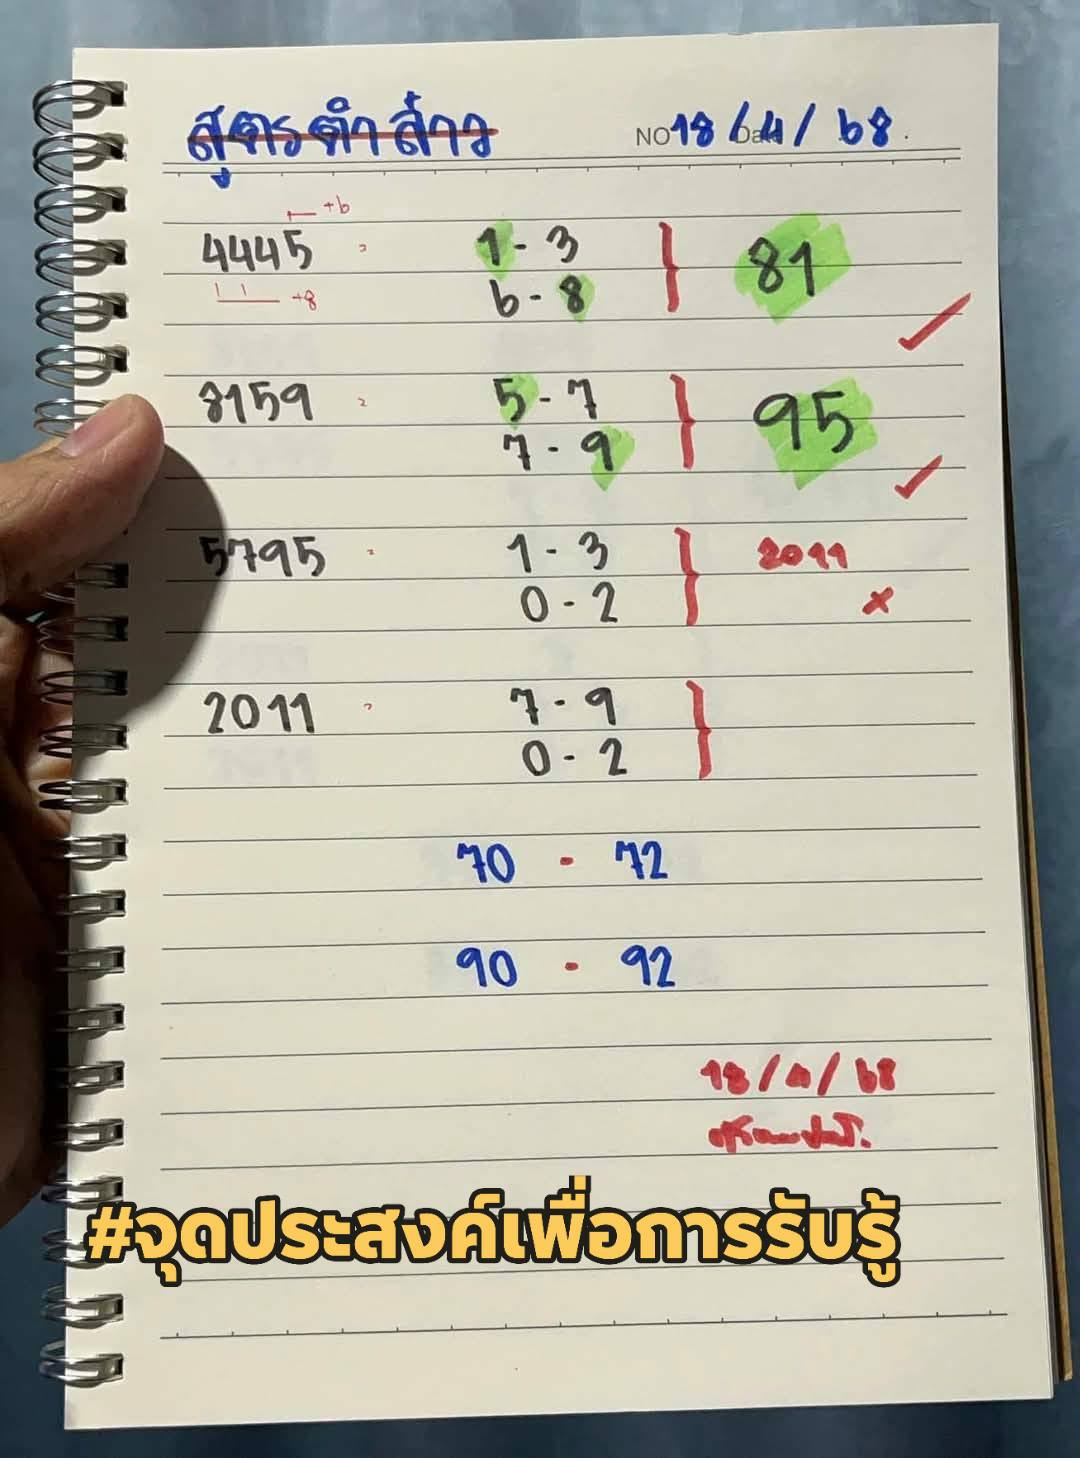 สูตรตำส๋าว
NO 18/4/68
+6
4445 = 1 - 3
6 - 8
81
+8
8159 = 5 - 7
7 - 9
95
5795 = 1 - 3
0 - 2
2011
×
2011 = 7 - 9
0 - 2
70 - 72
90 - 92
18/4/68
#จุดประสงค์เพื่อการรับรู้